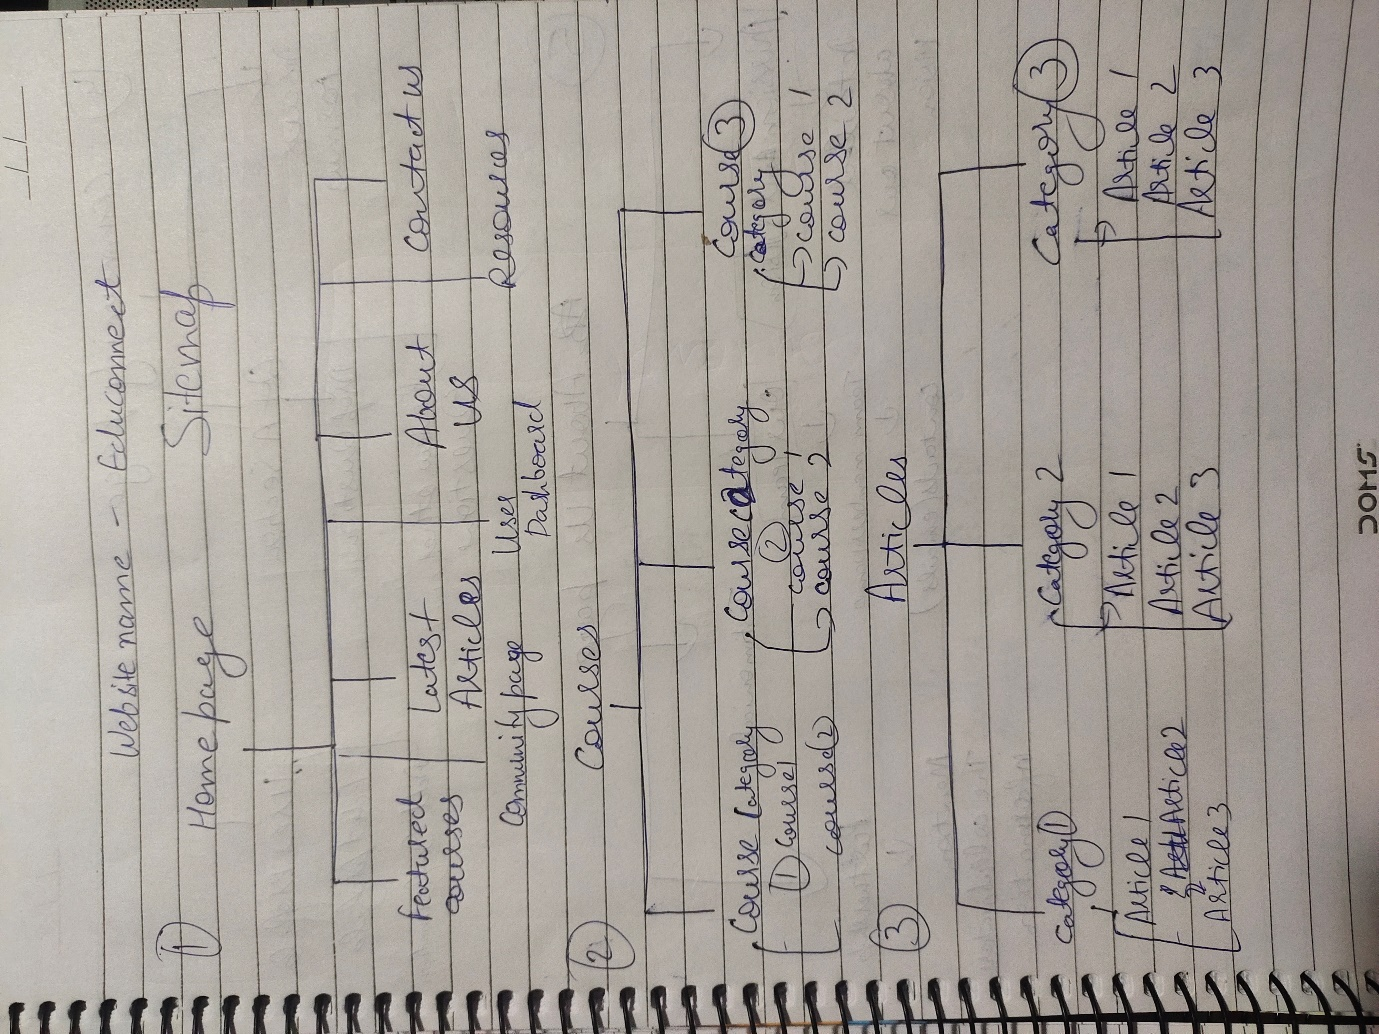 Website name - Educonnect
① Homepage Sitemap
Featured courses
Latest Articles
About us
Contact us
Community page
User Dashboard
Resources
② Courses
Course Category
① course 1
course ②
Course category
②
course 1
course 2
Course ③
category
course 1
course 2
③ Articles
Category ①
Article 1
Article 2
Article 3
Category 2
Article 1
Article 2
Article 3
Category ③
Article 1
Article 2
Article 3
DOMS